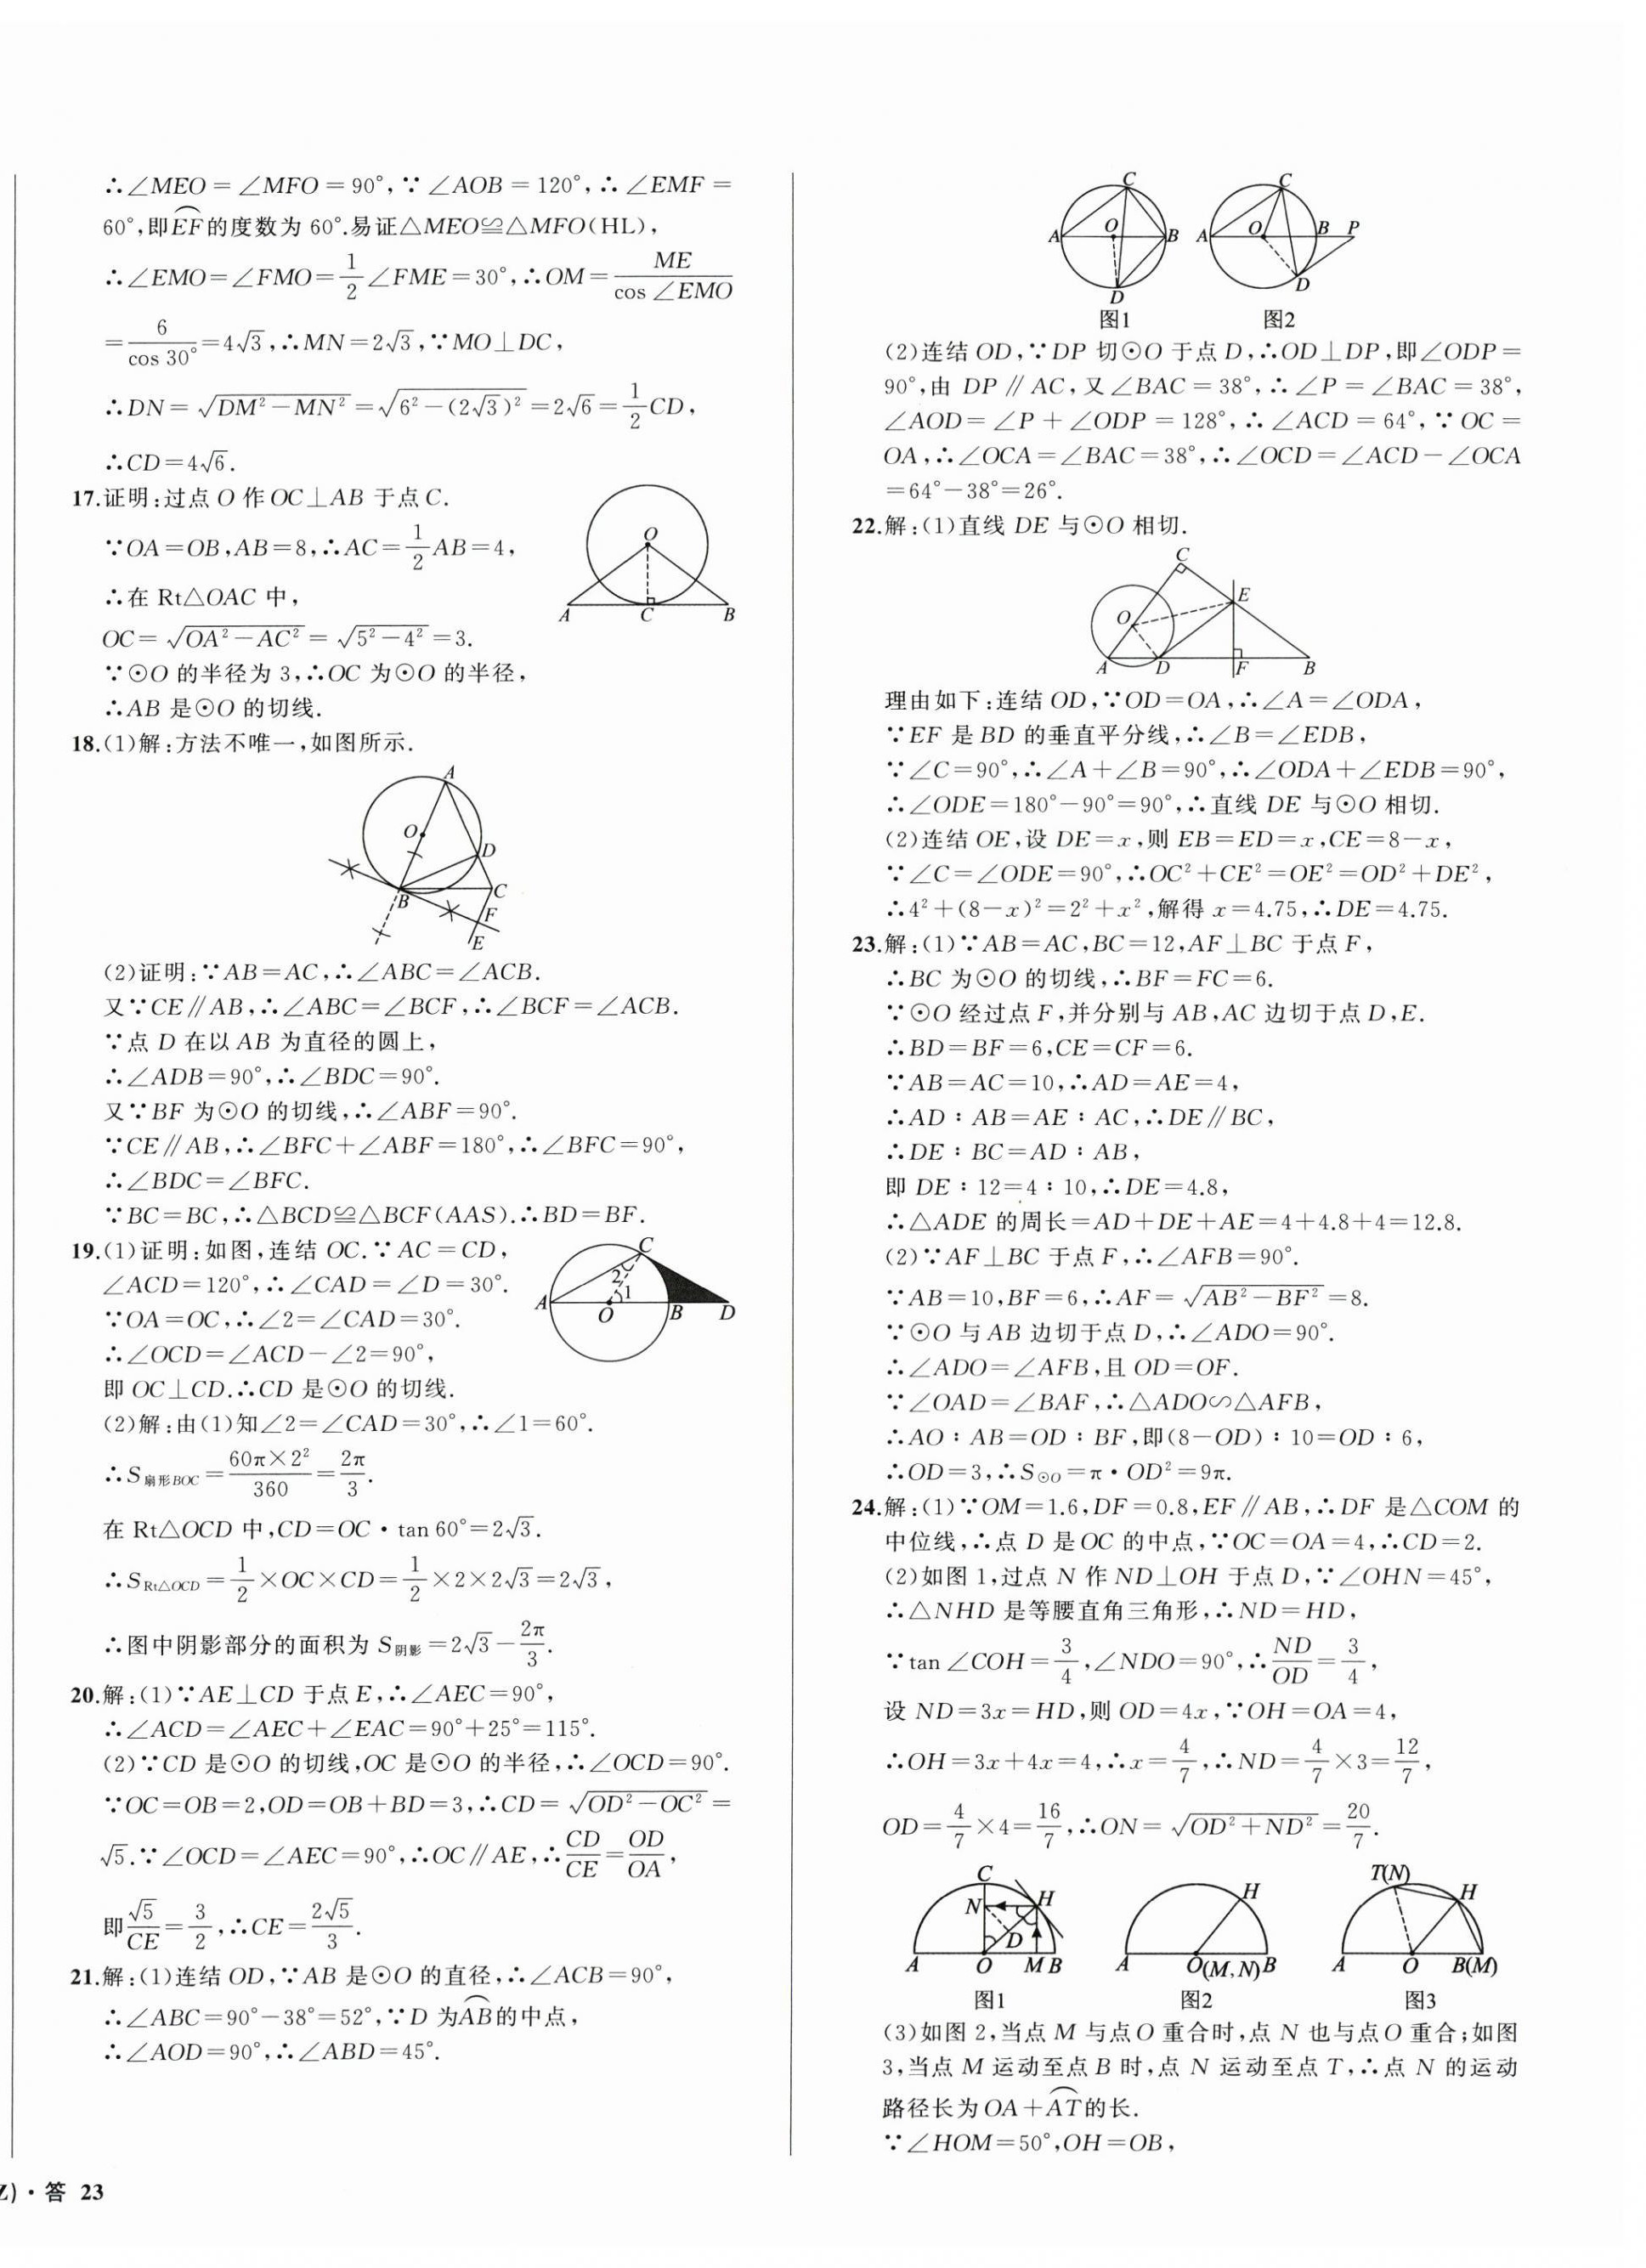 ∴∠MEO=∠MFO=90°,∵∠AOB=120°,∴∠EMF=
60°,即EF的度数为60°.易证△MEO≌△MFO(HL),
∴∠EMO=∠FMO=1/2∠FME=30°,∴OM=ME/cos∠EMO
=6/cos 30°=4√3,∴MN=2√3,∵MO⊥DC,
∴DN=√(DM²-MN²)=√(6²-(2√3)²)=2√6=1/2CD,
∴CD=4√6.
17.证明:过点O作OC⊥AB于点C.
∵OA=OB,AB=8,∴AC=1/2AB=4,
∴在Rt△OAC中,
OC=√(OA²-AC²)=√(5²-4²)=3.
∵⊙O的半径为3,∴OC为⊙O的半径,
∴AB是⊙O的切线.
O
A C B
18.(1)解:方法不唯一,如图所示.
A
O
D
B C
F
E
(2)证明:∵AB=AC,∴∠ABC=∠ACB.
又∵CE∥AB,∴∠ABC=∠BCF,∴∠BCF=∠ACB.
∵点D在以AB为直径的圆上,
∴∠ADB=90°,∴∠BDC=90°.
又∵BF为⊙O的切线,∴∠ABF=90°.
∵CE∥AB,∴∠BFC+∠ABF=180°,∴∠BFC=90°,
∴∠BDC=∠BFC.
∵BC=BC,∴△BCD≌△BCF(AAS).∴BD=BF.
19.(1)证明:如图,连结OC.∵AC=CD,
∠ACD=120°,∴∠CAD=∠D=30°.
∵OA=OC,∴∠2=∠CAD=30°.
∴∠OCD=∠ACD-∠2=90°,
即OC⊥CD.∴CD是⊙O的切线.
C
2
1
A O B D
(2)解:由(1)知∠2=∠CAD=30°,∴∠1=60°.
∴S扇形BOC=60π×2²/360=2π/3.
在Rt△OCD中,CD=OC·tan 60°=2√3.
∴S Rt△OCD=1/2×OC×CD=1/2×2×2√3=2√3,
∴图中阴影部分的面积为S阴影=2√3-2π/3.
20.解:(1)∵AE⊥CD于点E,∴∠AEC=90°,
∴∠ACD=∠AEC+∠EAC=90°+25°=115°.
(2)∵CD是⊙O的切线,OC是⊙O的半径,∴∠OCD=90°.
∵OC=OB=2,OD=OB+BD=3,∴CD=√(OD²-OC²)=
√5.∵∠OCD=∠AEC=90°,∴OC∥AE,∴CD/CE=OD/OA,
即√5/CE=3/2,∴CE=2√5/3.
21.解:(1)连结OD,∵AB是⊙O的直径,∴∠ACB=90°,
∴∠ABC=90°-38°=52°,∵D为AB的中点,
∴∠AOD=90°,∴∠ABD=45°.
Z)·答 23
C
A O B
D
图1
C
A O B P
D
图2
(2)连结OD,∵DP切⊙O于点D,∴OD⊥DP,即∠ODP=
90°,由DP∥AC,又∠BAC=38°,∴∠P=∠BAC=38°,
∠AOD=∠P+∠ODP=128°,∴∠ACD=64°,∵OC=
OA,∴∠OCA=∠BAC=38°,∴∠OCD=∠ACD-∠OCA
=64°-38°=26°.
22.解:(1)直线DE与⊙O相切.
C
O E
A D F B
理由如下:连结OD,∵OD=OA,∴∠A=∠ODA,
∵EF是BD的垂直平分线,∴∠B=∠EDB,
∵∠C=90°,∴∠A+∠B=90°,∴∠ODA+∠EDB=90°,
∴∠ODE=180°-90°=90°,∴直线DE与⊙O相切.
(2)连结OE,设DE=x,则EB=ED=x,CE=8-x,
∵∠C=∠ODE=90°,∴OC²+CE²=OE²=OD²+DE²,
∴4²+(8-x)²=2²+x²,解得x=4.75,∴DE=4.75.
23.解:(1)∵AB=AC,BC=12,AF⊥BC于点F,
∴BC为⊙O的切线,∴BF=FC=6.
∵⊙O经过点F,并分别与AB,AC边切于点D,E.
∴BD=BF=6,CE=CF=6.
∵AB=AC=10,∴AD=AE=4,
∴AD∶AB=AE∶AC,∴DE∥BC,
∴DE∶BC=AD∶AB,
即DE∶12=4∶10,∴DE=4.8,
∴△ADE的周长=AD+DE+AE=4+4.8+4=12.8.
(2)∵AF⊥BC于点F,∴∠AFB=90°.
∵AB=10,BF=6,∴AF=√(AB²-BF²)=8.
∵⊙O与AB边切于点D,∴∠ADO=90°.
∴∠ADO=∠AFB,且OD=OF.
∵∠OAD=∠BAF,∴△ADO∽△AFB,
∴AO∶AB=OD∶BF,即(8-OD)∶10=OD∶6,
∴OD=3,∴S⊙O=π·OD²=9π.
24.解:(1)∵OM=1.6,DF=0.8,EF∥AB,∴DF是△COM的
中位线,∴点D是OC的中点,∵OC=OA=4,∴CD=2.
(2)如图1,过点N作ND⊥OH于点D,∵∠OHN=45°,
∴△NHD是等腰直角三角形,∴ND=HD,
∵tan∠COH=3/4,∠NDO=90°,∴ND/OD=3/4,
设ND=3x=HD,则OD=4x,∵OH=OA=4,
∴OH=3x+4x=4,∴x=4/7,∴ND=4/7×3=12/7,
OD=4/7×4=16/7,∴ON=√(OD²+ND²)=20/7.
C
N H
D
A O M B
图1
H
A O(M,N) B
图2
T(N) H
A O B(M)
图3
(3)如图2,当点M与点O重合时,点N也与点O重合;如图
3,当点M运动至点B时,点N运动至点T,∴点N的运动
路径长为OA+AT的长.
∵∠HOM=50°,OH=OB,